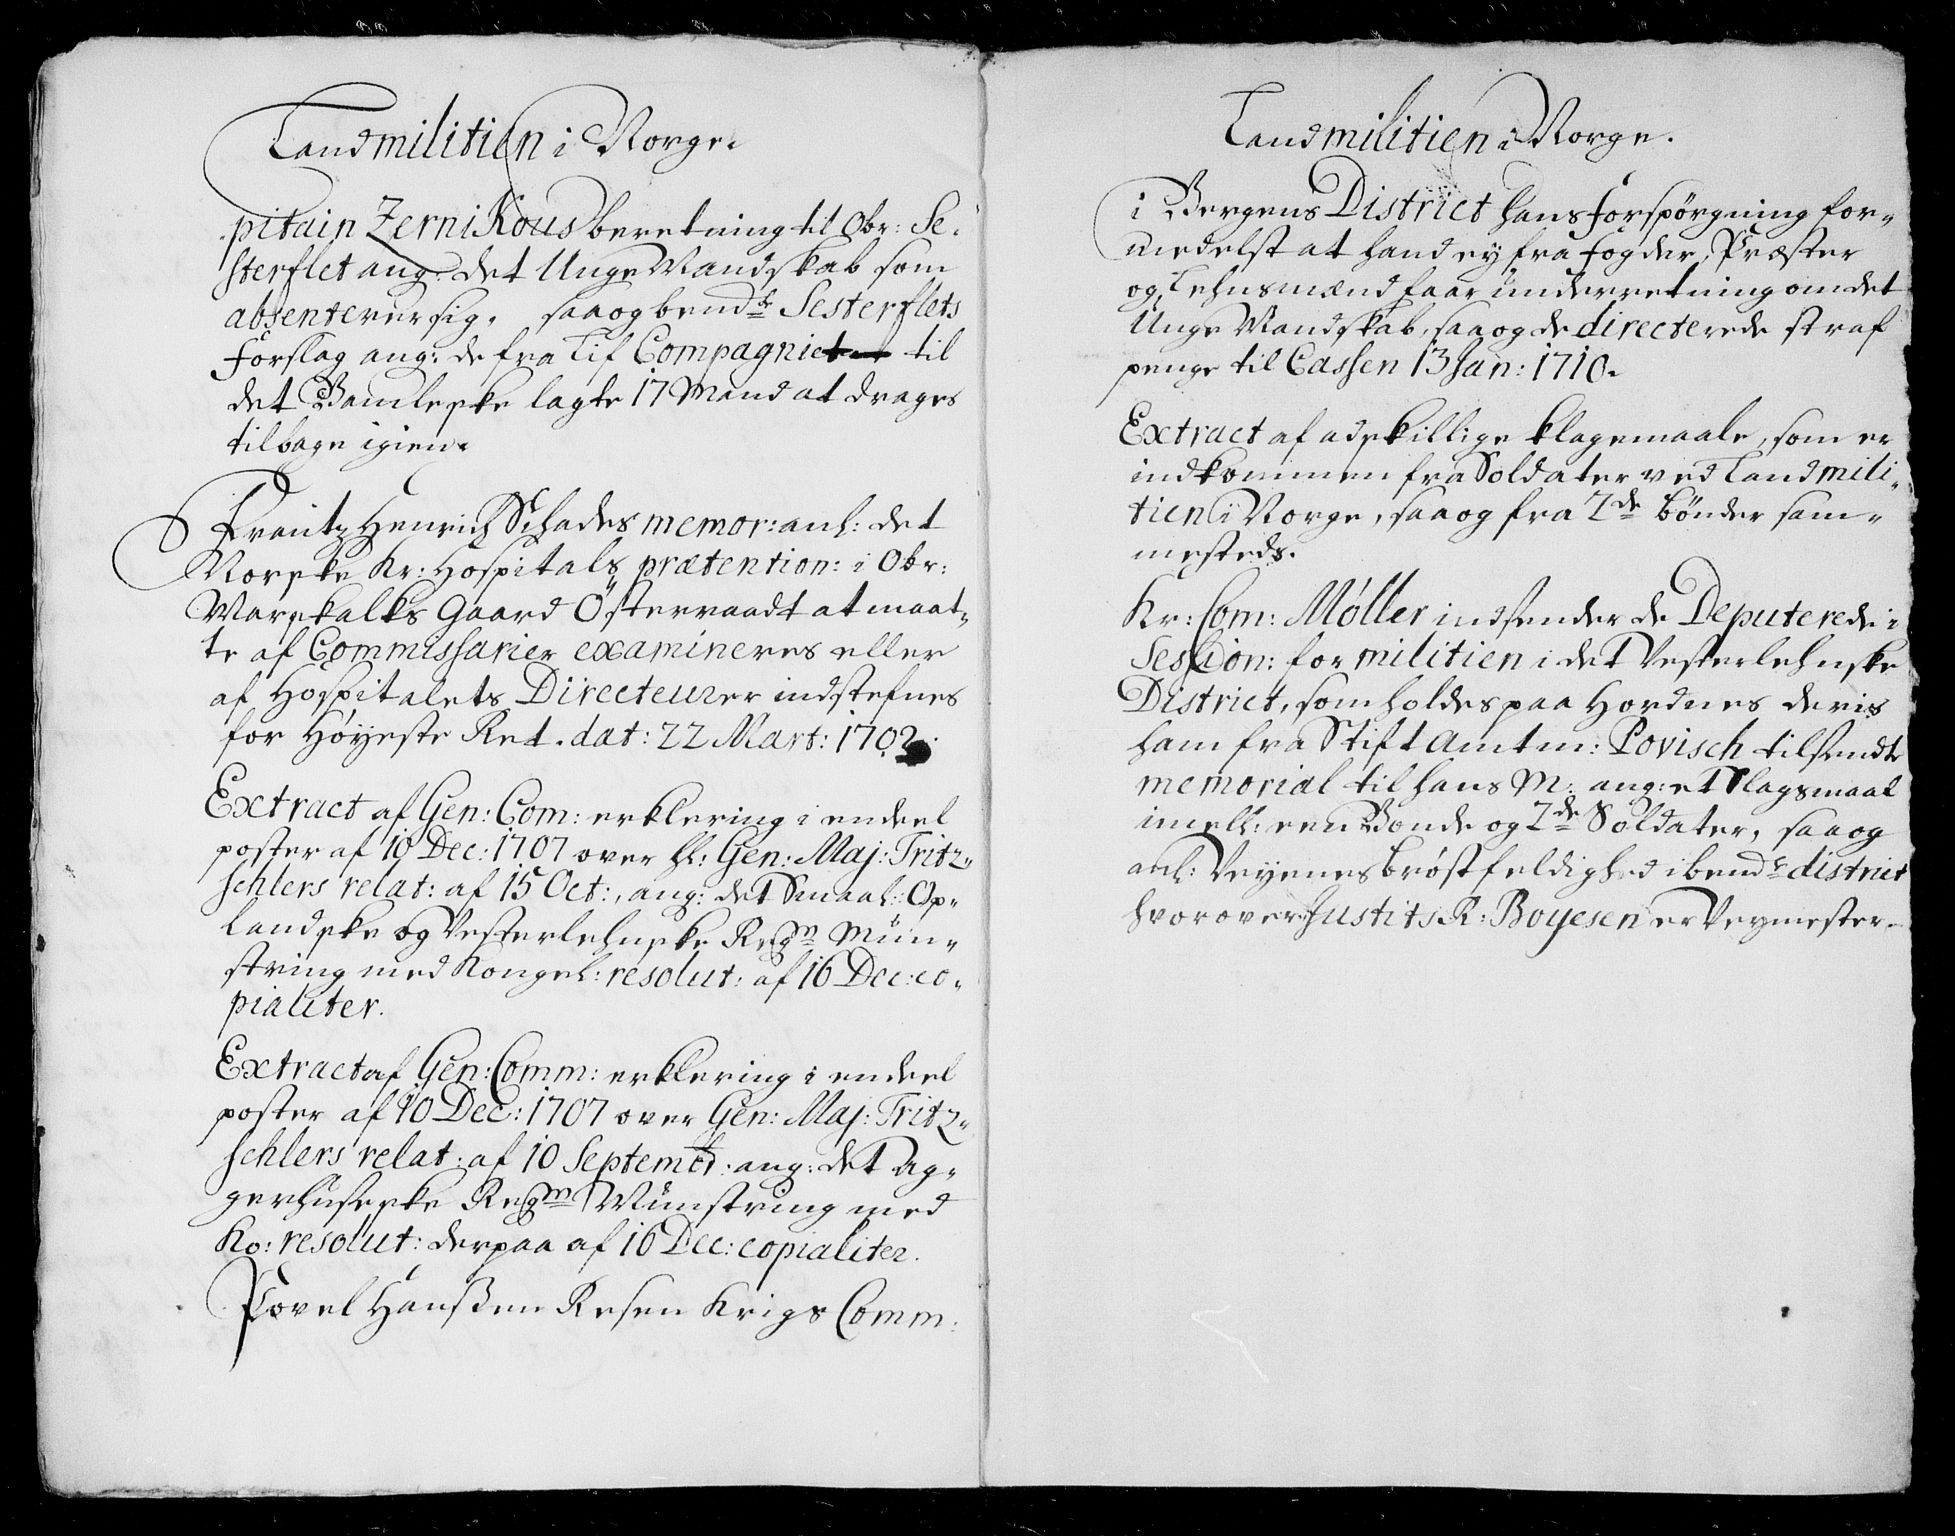 Landmilitien i Norge.
pitain Zernikous beretning til Obr: Se-
sterflet ang: det Unge Mandskab som
absenterer sig, saa og bemd:te Sesterflets
Forslag ang: de fra Lif Compagniet til
det Bamleske lagte 17 Mand at drages
tilbage igien.
Frantz Henrich Schades memor: anl: det
Norske Kr: Hospitals prætention: i Obr:
Marskalks Gaard Österraadt at maat-
te af Commissarier examineres eller
af Hospitalets Directeurer indstefnes
for Høyeste Ret. dat: 22 Mart: 1702.
Extract af Gen: Com: erklering i endeel
poster af 10 Dec: 1707 over hl: Gen: Maj: Tritz-
schlers relat: af 15 Oct:, ang: det Smaal: Op-
landske og Vesterlehnske Regm Mün-
string med Kongel: resolut: af 16 Dec: co-
pialiter.
Extract af Gen: Comm: erklering i endeel
poster af 10 Dec: 1707 over Gen: Maj: Tritz-
schlers relat: af 10 Septembr: ang: det Ag-
gerhuseske Regm Münstring med
Ko: resolut: derpaa af 16 Dec: copialiter.
Povel Hanßen Resen Krigs Comm:
Landmilitien i Norge.
i Bergens District hans Forspörgning for-
medelst at hand ey fra Fogder, Præster
og Lehnsmænd faar underretning om det
Unge Mandskab, saa og de directerede straf
penge til Cassen 13 Jan: 1710.
Extract af adskillige klagemaale, som er
indkommen fra Soldater ved Landmili-
tien i Norge, saa og fra 2de bönder sam-
mesteds.
Kr: Com: Møller indsender de Deputerede i
Session: for militien i det Vesterlehnske
District, som holdes paa Hordnes deris
ham fra Stift Amtm: Povisch tilsendte
memorial til hans M: ang: et Slagsmaal
imell: een Bonde og 2de Soldater, saa og
anl: Veyenes brøstfeldighed i bemd:te district
hvorover Justits R: Boyesen er Veymester.